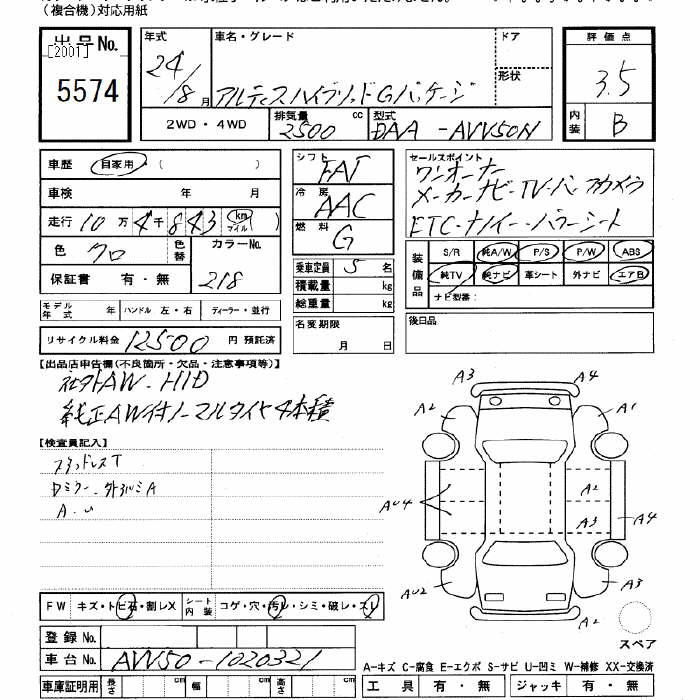 (複合機)対応用紙
出品No.
[2001]
5574
年式
24/8月
車名・グレード
アルティスハイブリッドGパッケージ
ドア
形状
評価点
3.5
内装
B
2WD・4WD
排気量 2500 cc
型式 DAA-AVV50N
車歴 自家用 ( )
車検 年 月
走行 10万4千843 km マイル
色 クロ
色替
カラーNo. 218
保証書 有・無
シフト FAT
冷房 AAC
燃料 G
乗車定員 5 名
積載量 kg
総重量 kg
名変期限
月 日
セールスポイント
ワンオーナー
メーカーナビ・TV・バックカメラ
ETC・ナノイー・パワーシート
装備品
S/R 純A/W P/S P/W ABS
純TV 純ナビ 革シート 外ナビ エアB
ナビ型番:
モデル年式 年 ハンドル 左・右 ディーラー・並行
後日品
リサイクル料金 12500 円 預託済
【出品店申告欄(不良箇所・欠品・注意事項等)】
社外AW・HID
純正AW付ノーマルタイヤ4本積
【検査員記入】
スタッドレスT
Dミラー・外アルミA
A・U
A3 A4
A2 A1
AU4 A2
A3 A4
AU2 A3
スペア
FW キズ・トビ石・割レX
シート内装 コゲ・穴・汚レ・シミ・破レ・スレ
登録No.
車台No. AVV50-1020321
A-キズ C-腐食 E-エクボ S-サビ U-凹ミ W-補修 XX-交換済
車庫証明用 長さ cm 幅 cm 高さ cm
工具 有・無 ジャッキ 有・無